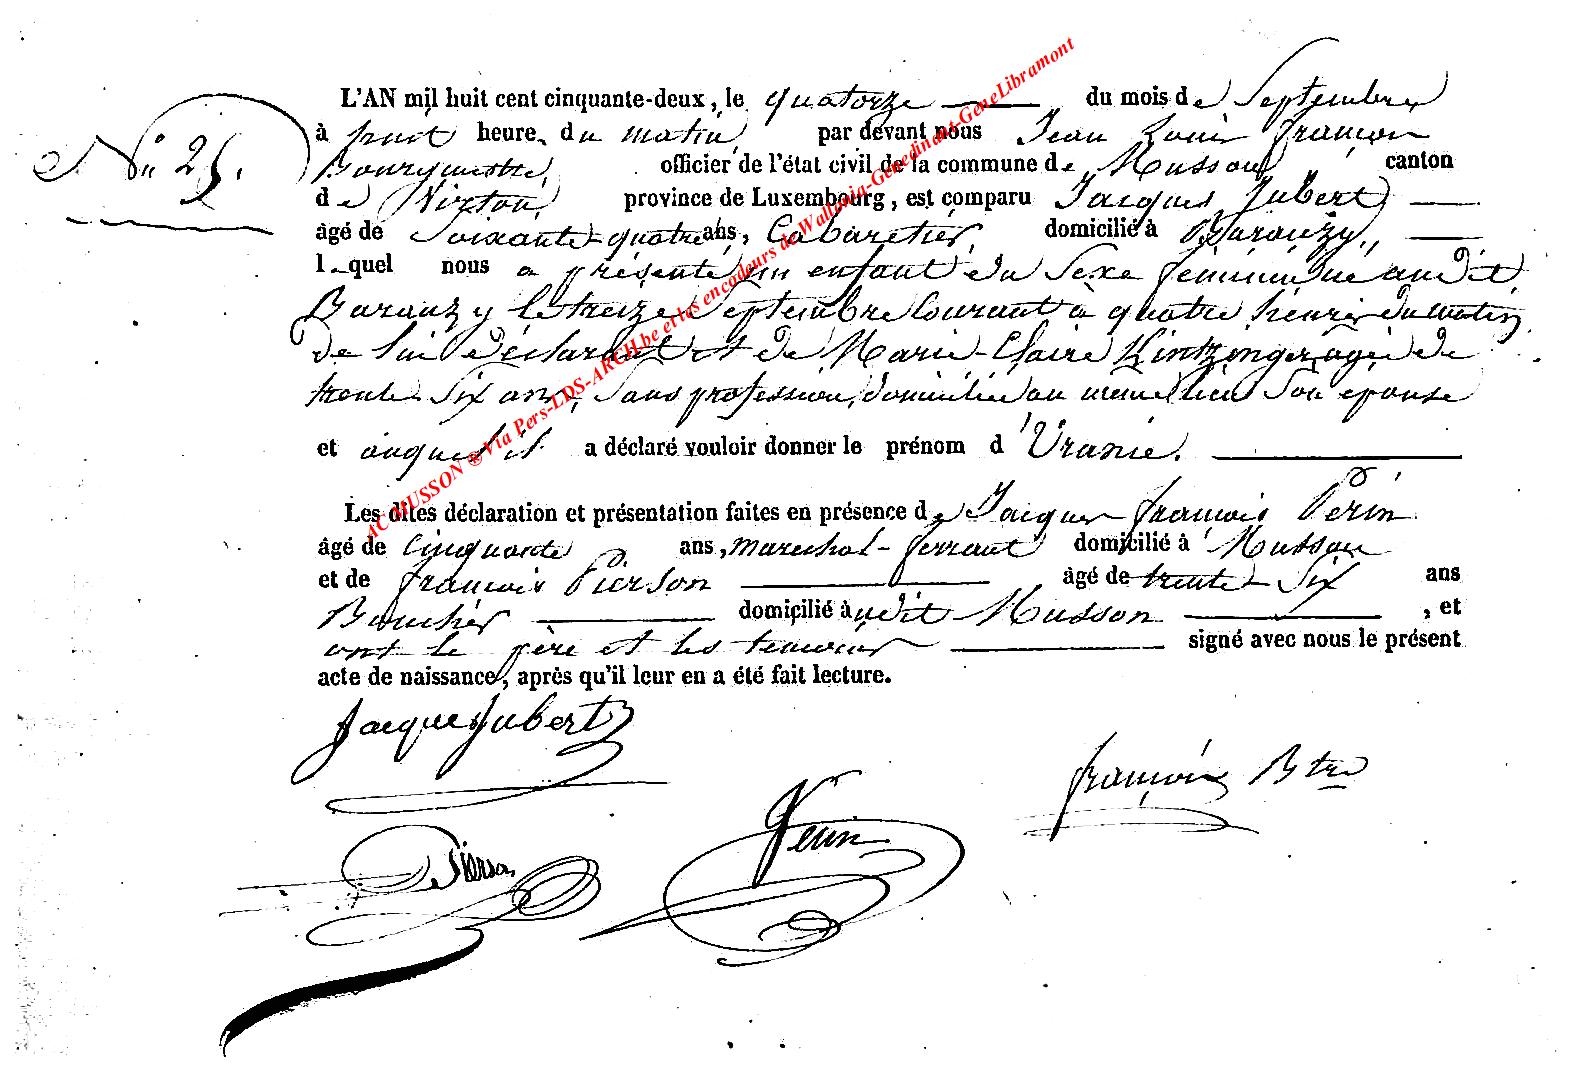 L'AN mil huit cent cinquante-deux, le quatorze du mois de Septembre
No 25.
à huit heures du matin, par devant nous Jean Louis François
Bourgmestre, officier de l'état civil de la commune de Musson canton
de Virton, province de Luxembourg, est comparu Jacques Jubert
âgé de Soixante-quatre ans, Cabaretier, domicilié à Baranzy,
lequel nous a présenté un enfant du Sexe féminin né audit
Baranzy le treize Septembre Courant à quatre heures du matin,
de lui déclarant et de Marie-Claire Kintzinger agée de
trente-Six ans, Sans profession, domiciliée au même lieu Son epouse
et auquel il a déclaré vouloir donner le prénom d'Uranie.
Les dites déclaration et présentation faites en présence de Jacques françois Perin
âgé de Cinquante ans, marechal-ferrant domicilié à Musson
et de françois Pierson âgé de trente-Six ans
Boucher domicilié audit Musson, et
ont le père et les temoins signé avec nous le présent
acte de naissance, après qu'il leur en a été fait lecture.
Jacque Jubert
françois Btre
Perin
Pierson
AC MUSSON ® Via Pers-LDS-ARCH.be et les encodeurs de Wallonia-Genedinant-GeneLibramont